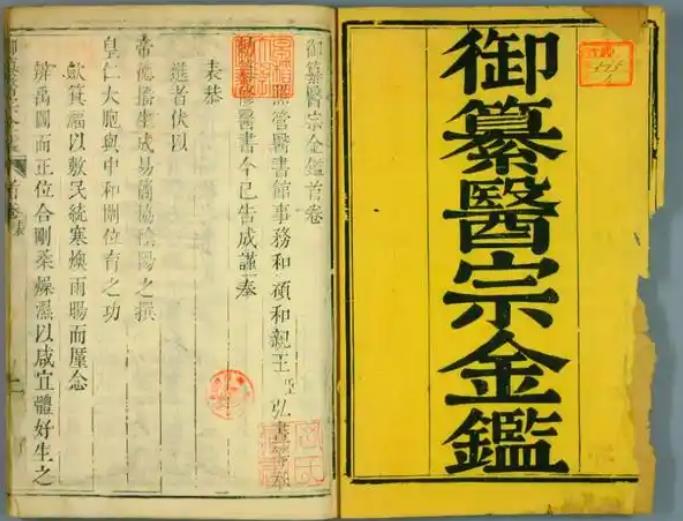 御纂醫宗金鑑
御纂醫宗金鑑首卷
照管醫書館事務和碩和親王臣弘晝等奉
修醫書今已告成謹奉
表恭
進者伏以
帝德擔生成易簡協陰陽之撰
皇仁大胞與中和開位育之功
歛箕福以敷民統寒燠雨暘而厪念
辨禹圖而正位合剛柔燥濕以咸宜體好生之